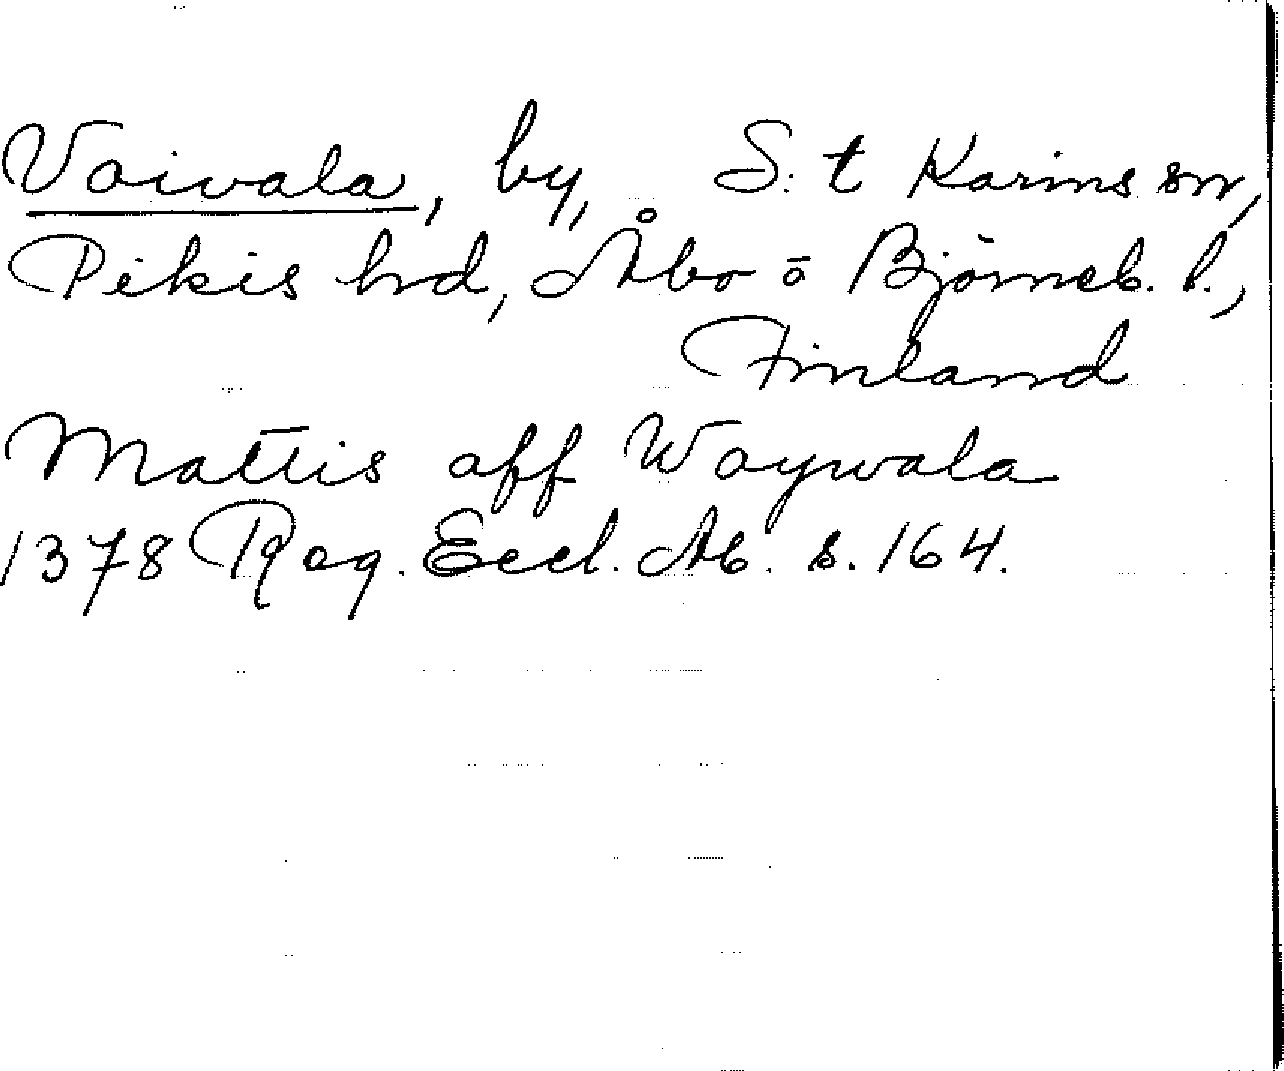 Vaivala, by, S:t Karins sn,
Pikis hd, Åbo o Björneb. l.,
Finland
Mattis aff Waywala
1378 Reg. Eccl. Ab. s. 164.